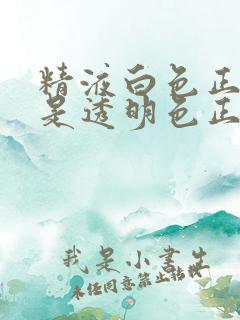 精液白色正
是透明色正
我是小书生
未经同意禁止转载